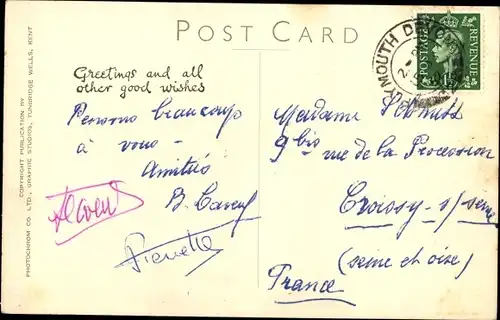 POST CARD
COPYRIGHT PUBLICATION BY
PHOTOCHROM CO. LTD., GRAPHIC STUDIOS, TUNBRIDGE WELLS, KENT
Greetings and all
other good wishes
Pensons beaucoup
à vous -
Amitiés
B.
Pierrette
PLYMOUTH DEVON
POSTAGE
REVENUE
Madame Schmitt
9 bis rue de la Procession
Croissy-s/-seine
(seine et oise)
France